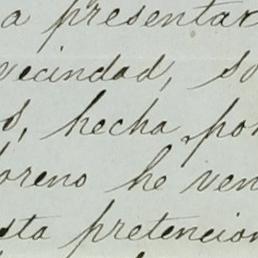 a presentar
vecindad, so
s, hecha por
oreno he ven
sta pretencion